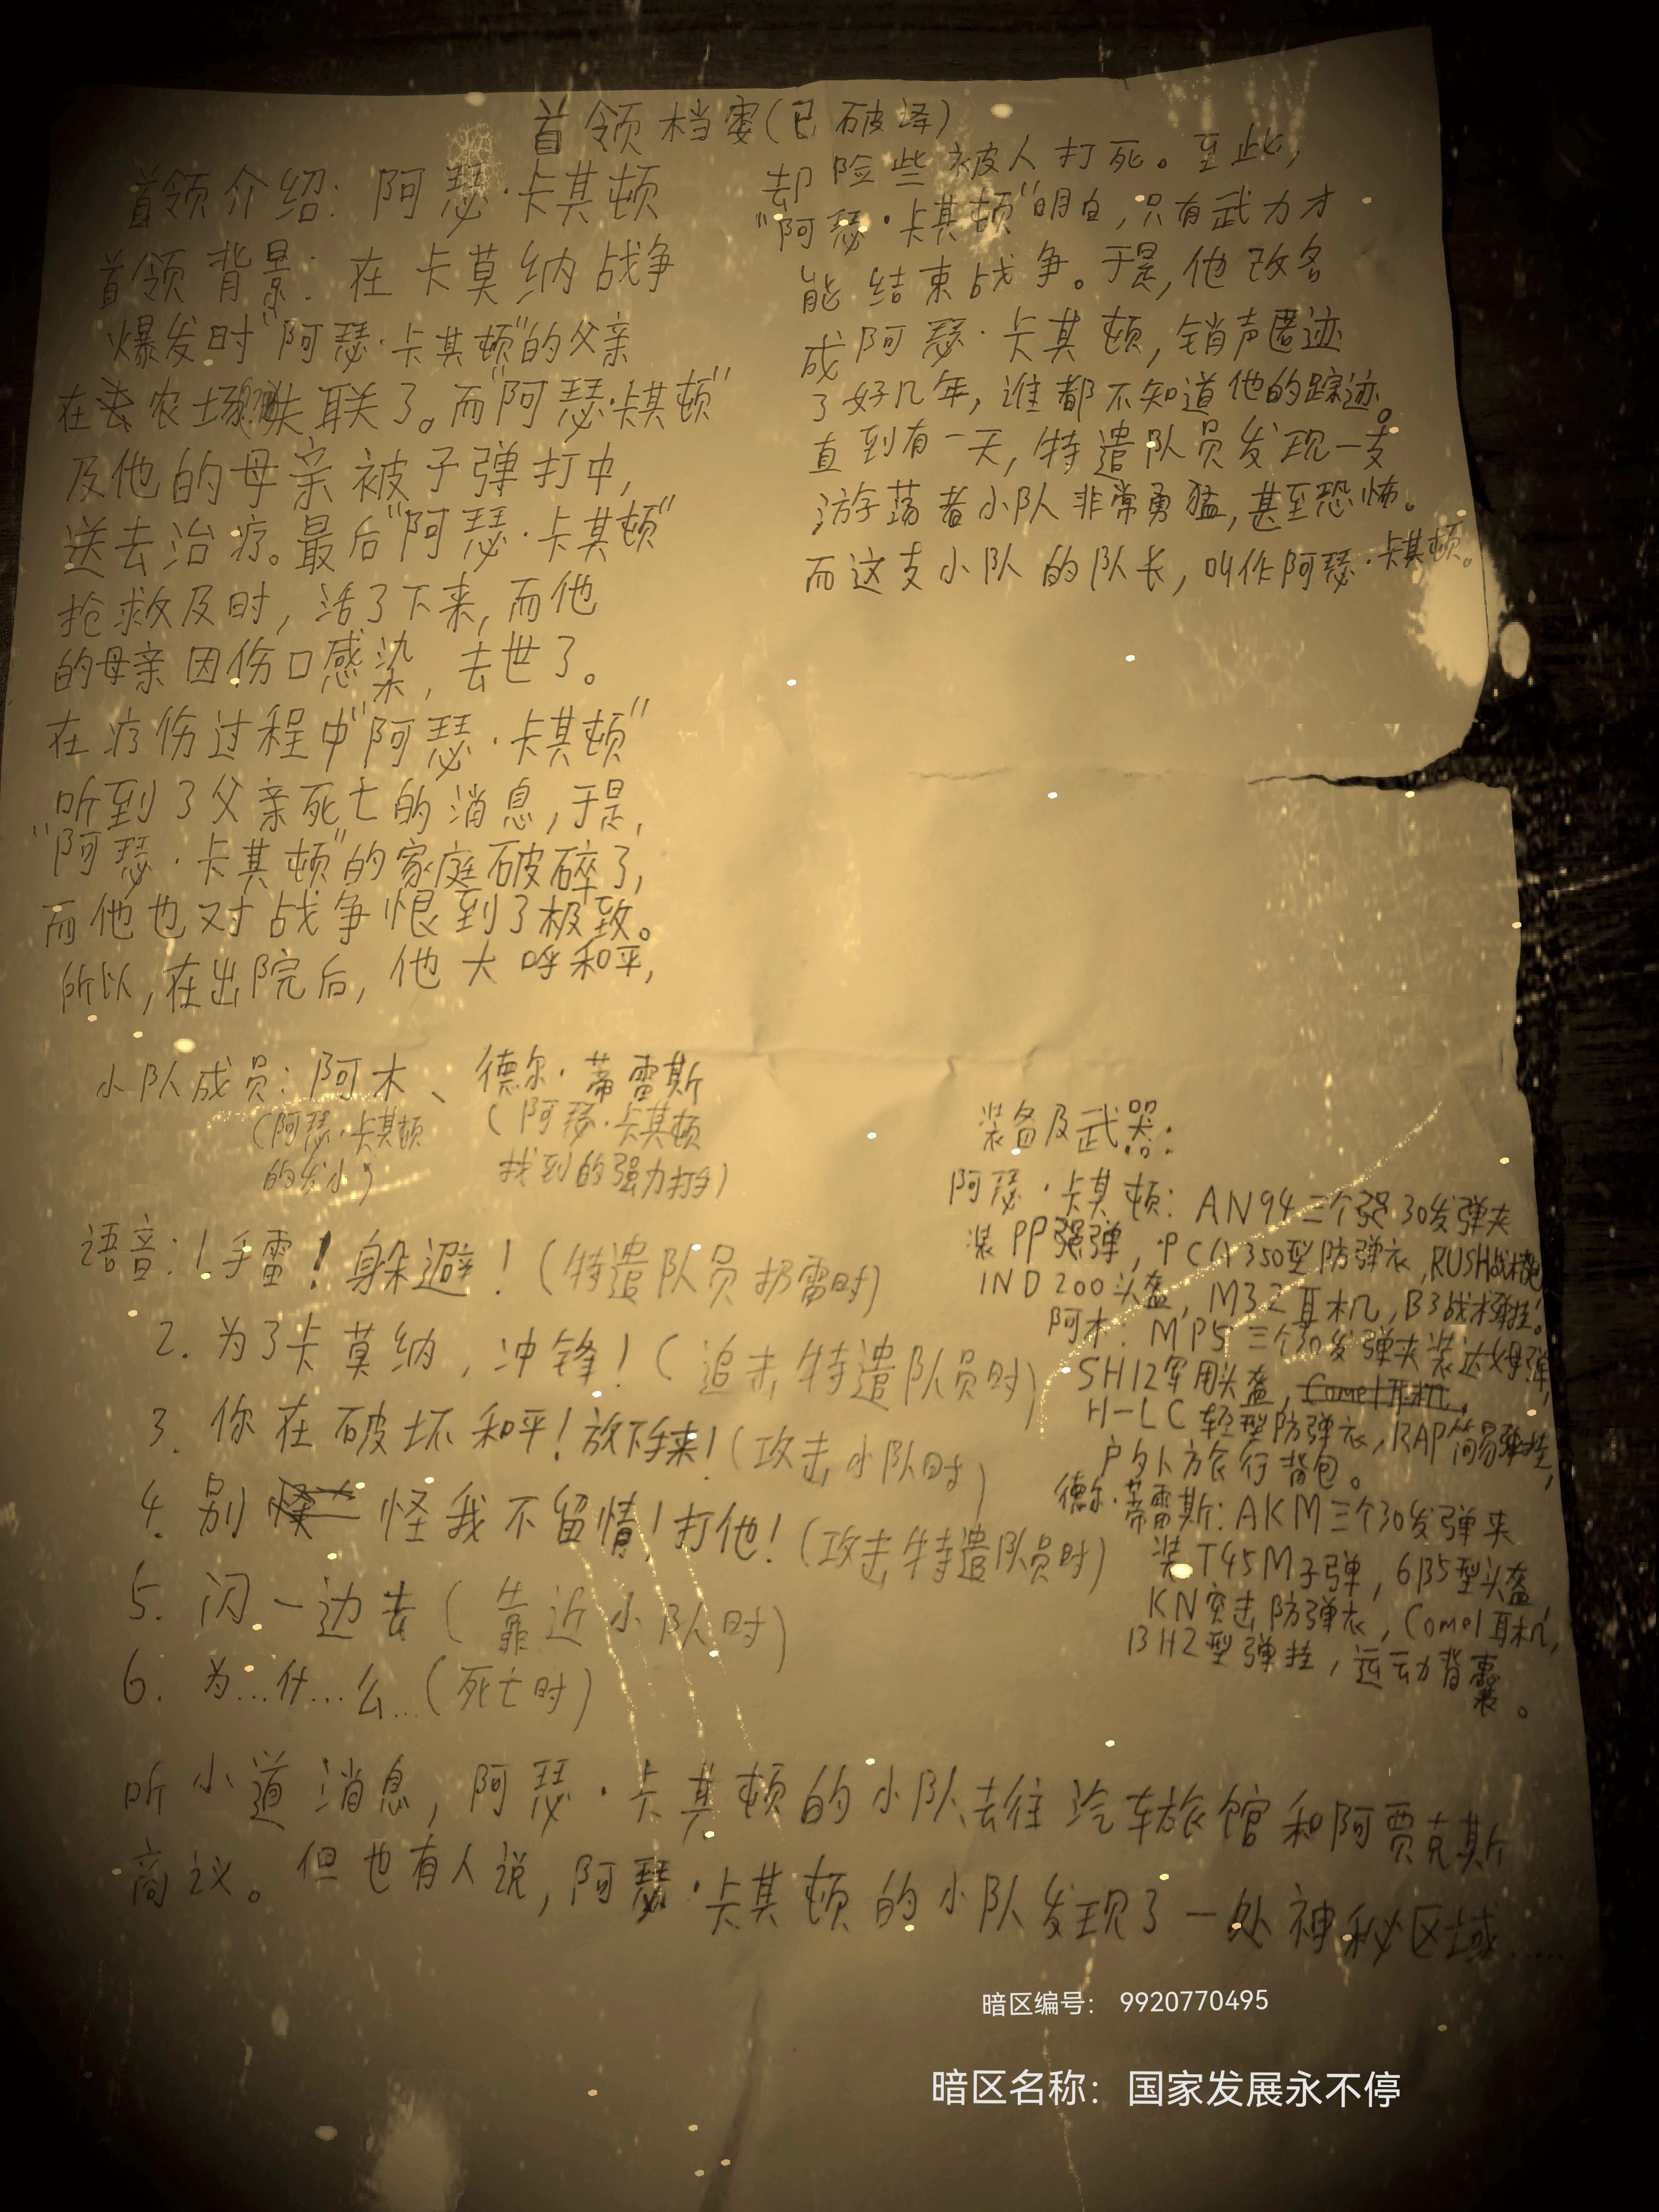 首领档案(已破译)
首领介绍:阿瑟·卡其顿
首领背景:在卡莫纳战争
爆发时"阿瑟·卡其顿"的父亲
在去农场失联了。而"阿瑟·卡其顿"
及他的母亲被子弹打中,
送去治疗。最后"阿瑟·卡其顿"
抢救及时,活了下来,而他
的母亲因伤口感染,去世了。
在疗伤过程中"阿瑟·卡其顿"
听到了父亲死亡的消息,于是,
"阿瑟·卡其顿"的家庭破碎了,
而他也对战争恨到了极致。
所以,在出院后,他大呼和平,
却险些被人打死。至此,
"阿瑟·卡其顿"明白,只有武力才
能结束战争。于是,他改名
成阿瑟·卡其顿,销声匿迹
了好几年,谁都不知道他的踪迹。
直到有一天,特遣队员发现一支
游荡者小队非常勇猛,甚至恐怖。
而这支小队的队长,叫作阿瑟·卡其顿。
小队成员:阿木、德尔·蒂雷斯
(阿瑟·卡其顿
的发小)
(阿瑟·卡其顿
找到的强力打手)
语音:1手雷!躲避!(特遣队员扔雷时)
2.为了卡莫纳,冲锋!(追击特遣队员时)
3.你在破坏和平!放下手来!(攻击小队时)
4.别怪我不留情!打他!(攻击特遣队员时)
5.闪一边去(靠近小队时)
6.为…什…么…(死亡时)
装备及武器:
阿瑟·卡其顿:AN94三个30发弹夹
装PP弹,PCA350型防弹衣,RUSH
IND200头盔,M32耳机,B3战术弹挂。
阿木:MP5三个30发弹夹装达姆弹,
SH12军用头盔,
H-LC轻型防弹衣,RAP简易弹挂,
户外旅行背包。
德尔·蒂雷斯:AKM三个30发弹夹
装T45M子弹,6B5型头盔
KN突击防弹衣,Come1耳机,
BH2型弹挂,运动背囊。
听小道消息,阿瑟·卡其顿的小队去往汽车旅馆和阿贾克斯
商议。但也有人说,阿瑟·卡其顿的小队发现了一处神秘区域……
暗区编号: 9920770495
暗区名称:国家发展永不停